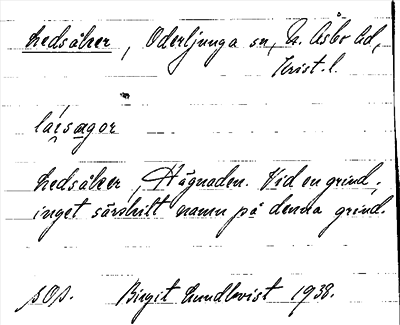 Ledsåker, Oderljunga sn, N. Åsbo hd,
Krist. l.
láesagor
Ledsåker, Hägnaden. Vid en grind,
inget särskilt namn på denna grind.
sOp. Birgit Lundkvist 1938.